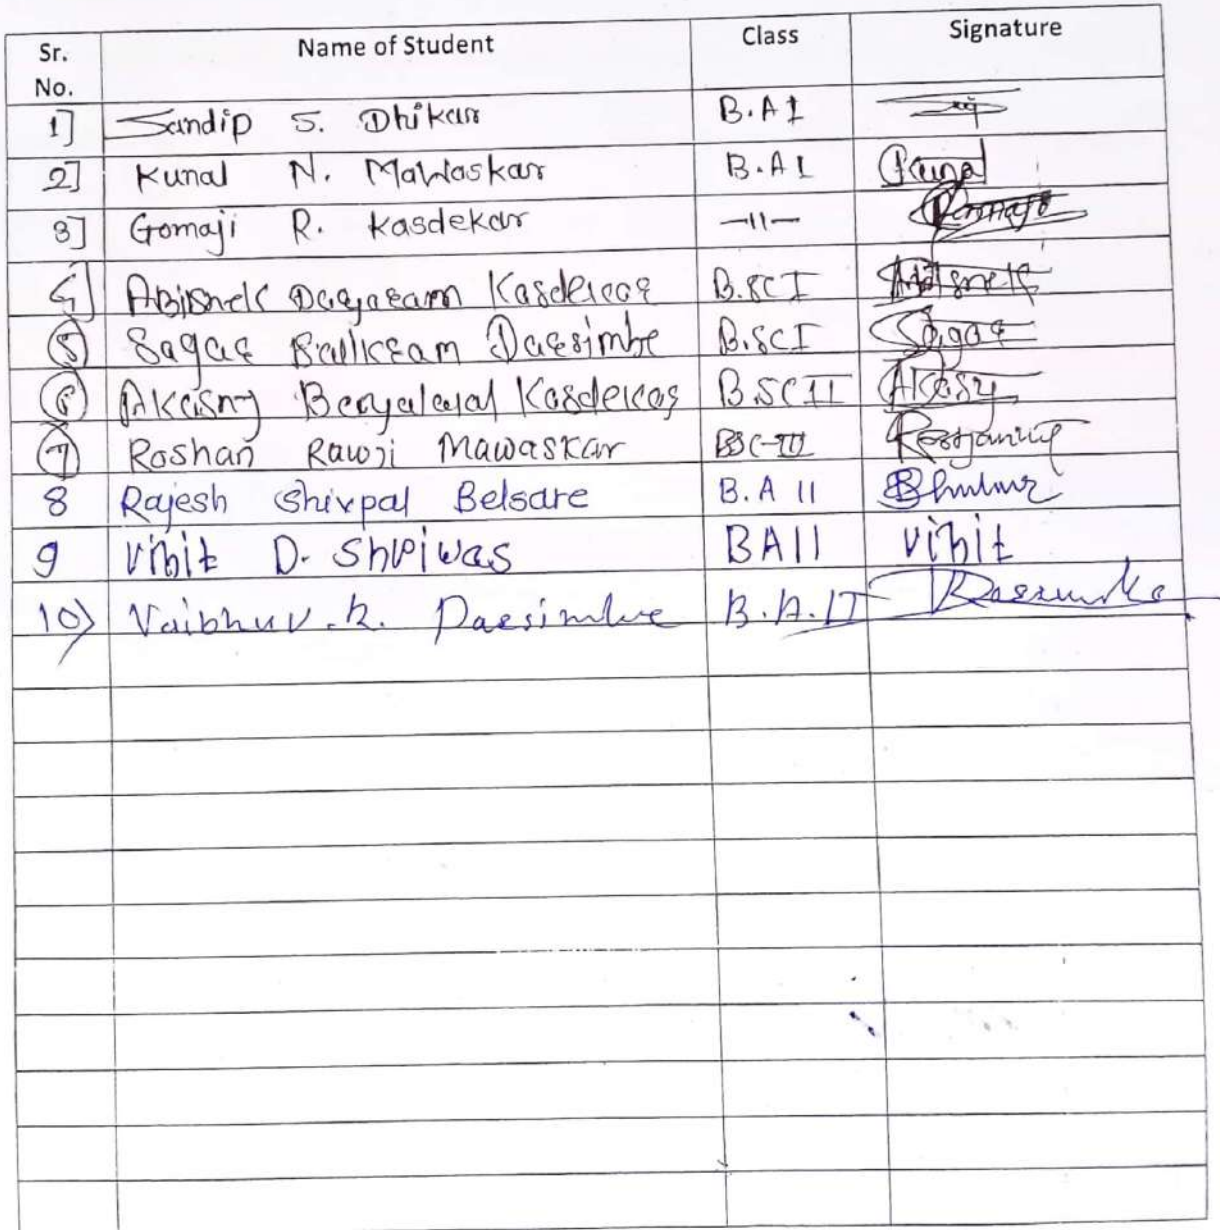 Sr. No. Name of Student Class Signature
1] Sandip S. Dhikar B.A I
2] Kunal N. Mawaskar B.A I Kunal
3] Gomaji R. Kasdekar —11—
4] Abishek Dayaram Kasdekar B.SC I Abishek
5 Sagar Balkram Darsimbe B.SC I Sagar
6 Akash Kasdekar B.SC II Akash
7 Roshan Rawji Mawaskar BSC-III
8 Rajesh Shivpal Belsare B.A II
9 Vihit D. Shriwas BA II Vihit
10) Vaibhuv. R. Darsimbe B.A. II